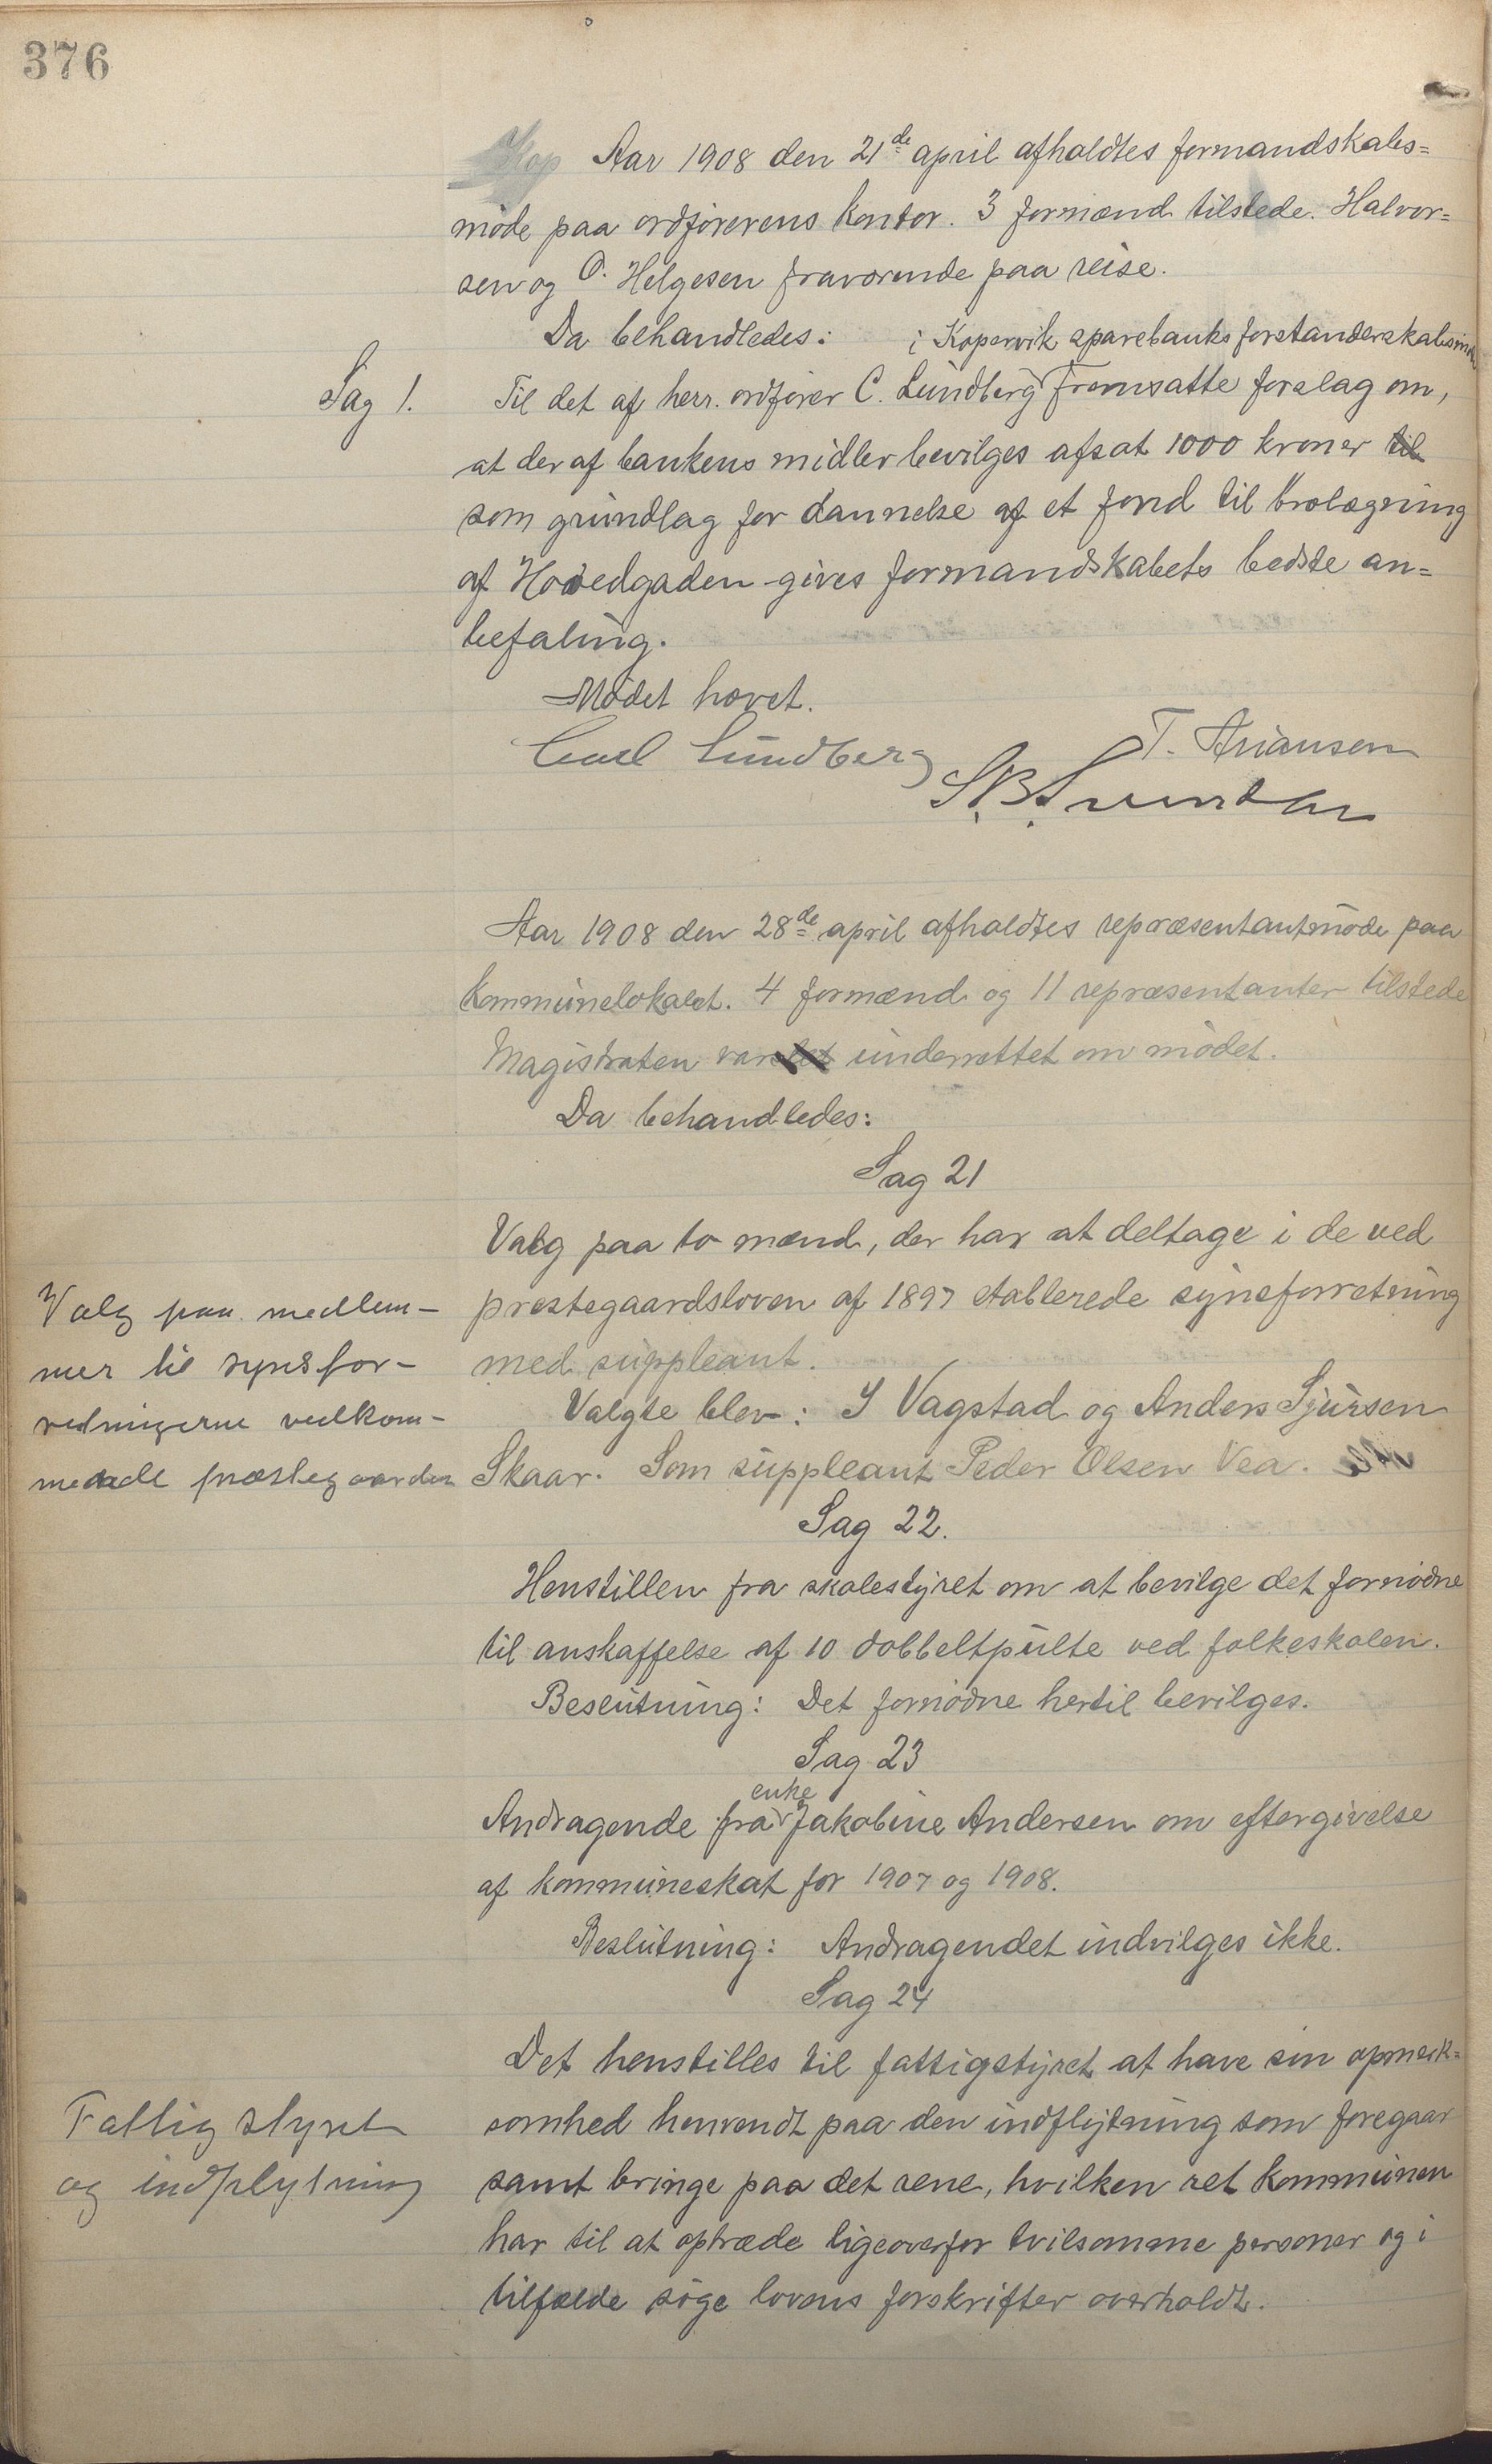 376
Aar 1908 den 21de april afholdtes formandskabs=
møde paa ordførerens kontor. 3 formænd tilstede. Halvor=
sen og O. Helgesen fraværende paa reise.
Da behandledes:
i Kopervik sparebanks forstanderskabsmøde
Sag 1.
Til det af herr. ordfører C. Lundberg fremsatte forslag om,
at der af bankens midler bevilges afsat 1000 kroner til
som grundlag for dannelse af et fond til brolægning
af Hovedgaden gives formandskabets bedste an=
befaling.
Mødet hævet.
Carl Lundberg
T. Ariansen
Aar 1908 den 28de april afholdtes repræsentantmøde paa
kommunelokalet. 4 formænd og 11 repræsentanter tilstede
Magistraten var underrettet om mødet.
Da behandledes:
Sag 21
Valg paa to mænd, der har at deltage i de ved
prestegaardsloven af 1897 etablerede synsforretning
med suppleant.
Valg paa medlem-
mer til synsfor-
retningerne vedkom-
mende præstegaarden
Valgte blev: I Vagstad og Anders Sjursen
Skaar. Som suppleant Peder Olsen Vea.
Sag 22.
Henstillen fra skolestyret om at bevilge det fornødne
til anskaffelse af 10 dobbeltpulte ved folkeskolen.
Beslutning: Det fornødne hertil bevilges.
Sag 23
enke
Andragende fra Jakobine Andersen om eftergivelse
af kommuneskat for 1907 og 1908.
Beslutning: Andragendet indvilges ikke.
Sag 24
Det henstilles til fattigstyret at have sin opmerk=
somhed henvendt paa den indflytning som foregaar
samt bringe paa det rene, hvilken ret kommunen
har til at optræde ligeoverfor tvilsomme personer og i
tilfælde søge lovens forskrifter overholdt.
Fattigstyret
og indflytning